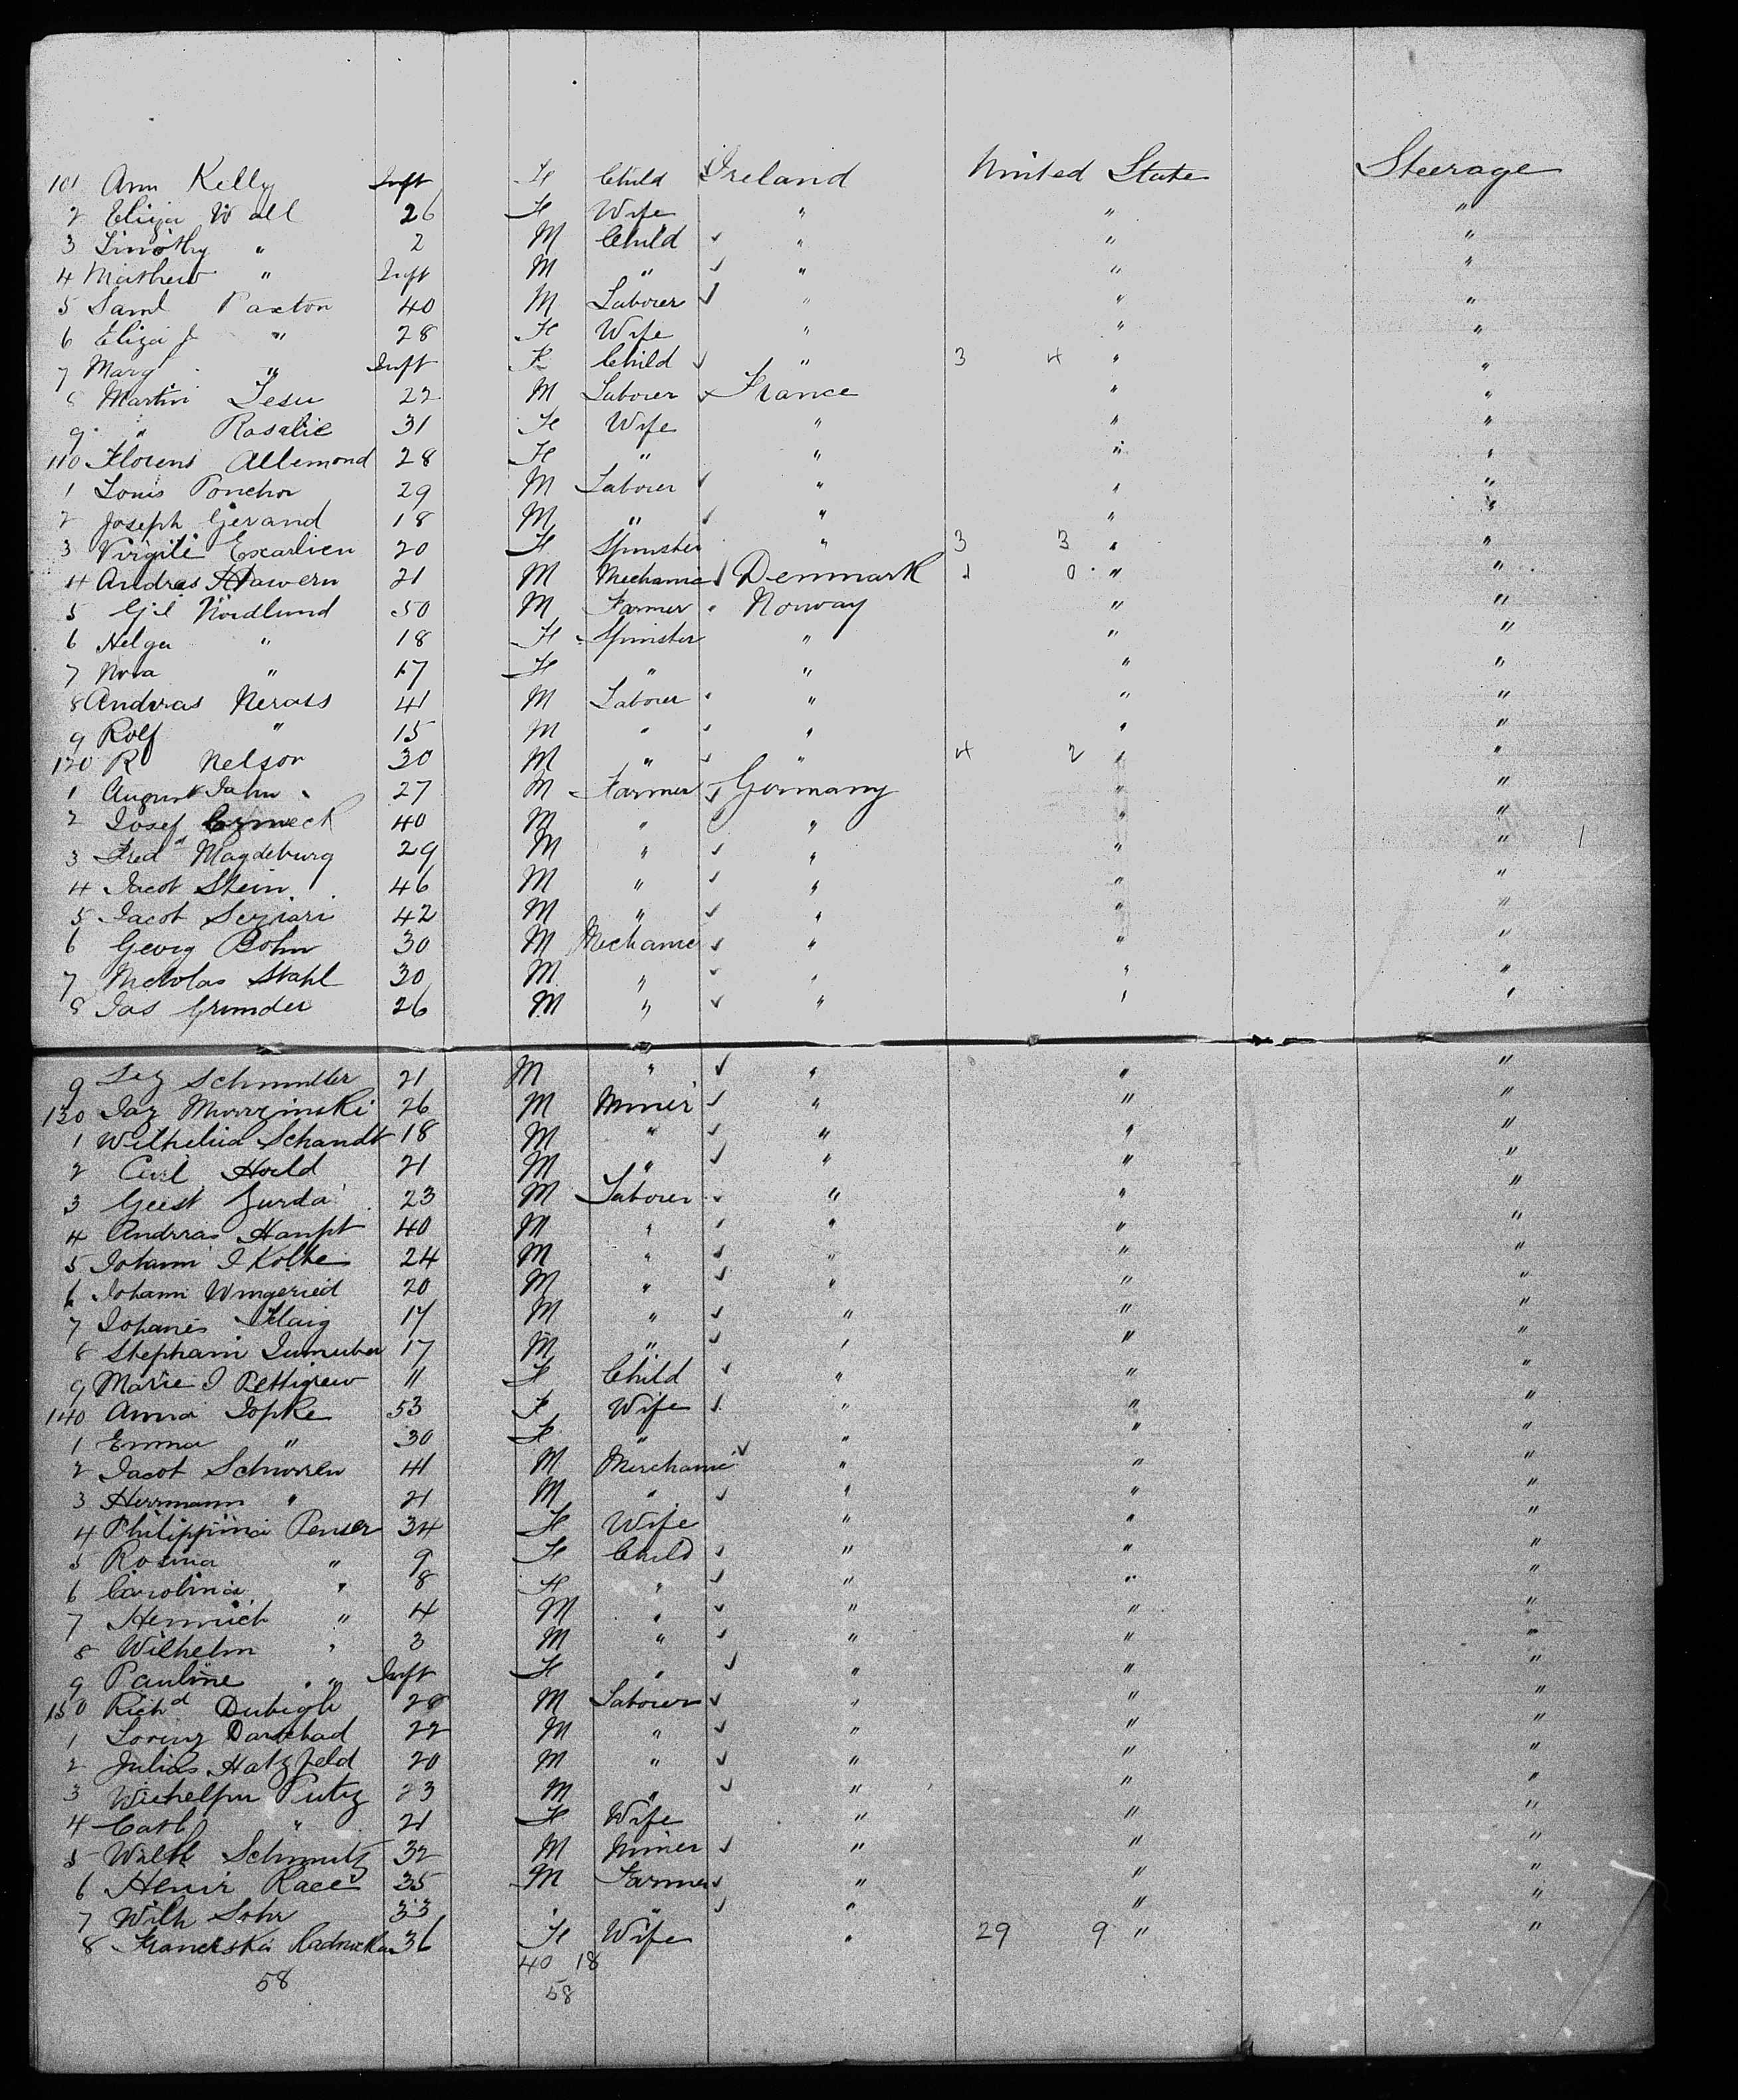 101 Ann Kelly Inft F Child Ireland United State Steerage
2 Eliza Wall 26 F Wife " " "
3 Timothy " 2 M Child " " "
4 Mathew " Inft M " " " "
5 Saml Paxton 40 M Laborer " " "
6 Eliza J " 28 F Wife " " "
7 Mary " Inft F Child " 3 4 " "
8 Martin Jesu 22 M Laborer France " "
9 " Rosalie 31 F Wife " " "
110 Florens Allemond 28 F " " " "
1 Louis Ponchon 29 M Laborer " " "
2 Joseph Gerand 18 M " " " "
3 Virgile 20 F Spinster " 3 3 " "
4 Andras 21 M Mechanic Denmark 1 0 " "
5 Nordlund 50 M Farmer Norway " "
6 Helga " 18 F Spinster " " "
7 Nora " 17 F " " " "
8 Andreas Nerass 41 M Laborer " " "
9 Rolf " 15 M " " " "
120 R Nelson 30 M " " 4 2 " "
1 August Jahn 27 M Farmer Germany " "
2 Josef 40 M " " " "
3 Fred Magdeburg 29 M " " " " 1
4 Jacob Stein 46 M " " " "
5 Jacob 42 M " " " "
6 Georg Bohn 30 M Mechanic " " "
7 Nicholas Stahl 30 M " " " "
8 Jas Grunder 26 M " " " "
9 21 M " " " "
130 26 M Miner " " "
1 Schandt 18 M " " " "
2 Carl Hold 21 M " " " "
3 Geest Jurda 23 M Laborer " " "
4 Andreas Haupt 40 M " " " "
5 Johann J Kolbe 24 M " " " "
6 Johann Wingeried 20 M " " " "
7 Johanes Flaig 17 M " " " "
8 Stephani 17 M " " " "
9 Marie J Pettigrew 11 F Child " " "
140 Anna Jopke 53 F Wife " " "
1 Emma " 30 F " " " "
2 Jacob Schurren 41 M Merchanic " " "
3 Herrmann " 21 M " " " "
4 Philippina Penser 34 F Wife " " "
5 Rosina " 9 F Child " " "
6 Carolina " 8 F " " " "
7 Heinrich " 4 M " " " "
8 Wilhelm " 3 M " " " "
9 Pauline " Inft F " " " "
150 Richd Dubigh 28 M Laborer " " "
1 Lorenz 22 M " " " "
2 Julius Hatzfeld 20 M " " " "
3 Putz 23 M " " " "
4 Cath " 21 F Wife " " "
5 Wilh Schmutz 32 M Miner " " "
6 Henir Race 35 M Farmer " " "
7 Wilh Sohr 33 " " " " "
8 Franciska 36 F Wife " 29 9 " "
58 40 18
58